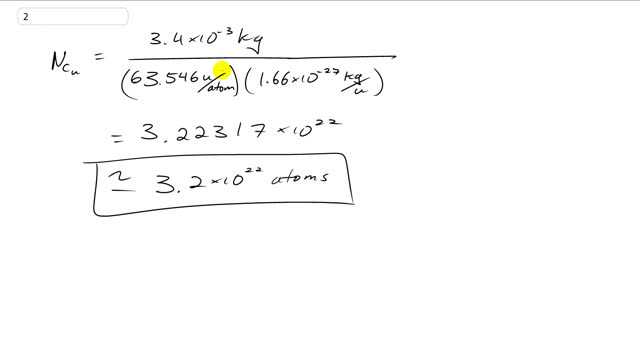 2
N_Cu = 3.4×10⁻³ kg / (63.546 u/atom)(1.66×10⁻²⁷ kg/u)
= 3.22317×10²²
≃ 3.2×10²² atoms